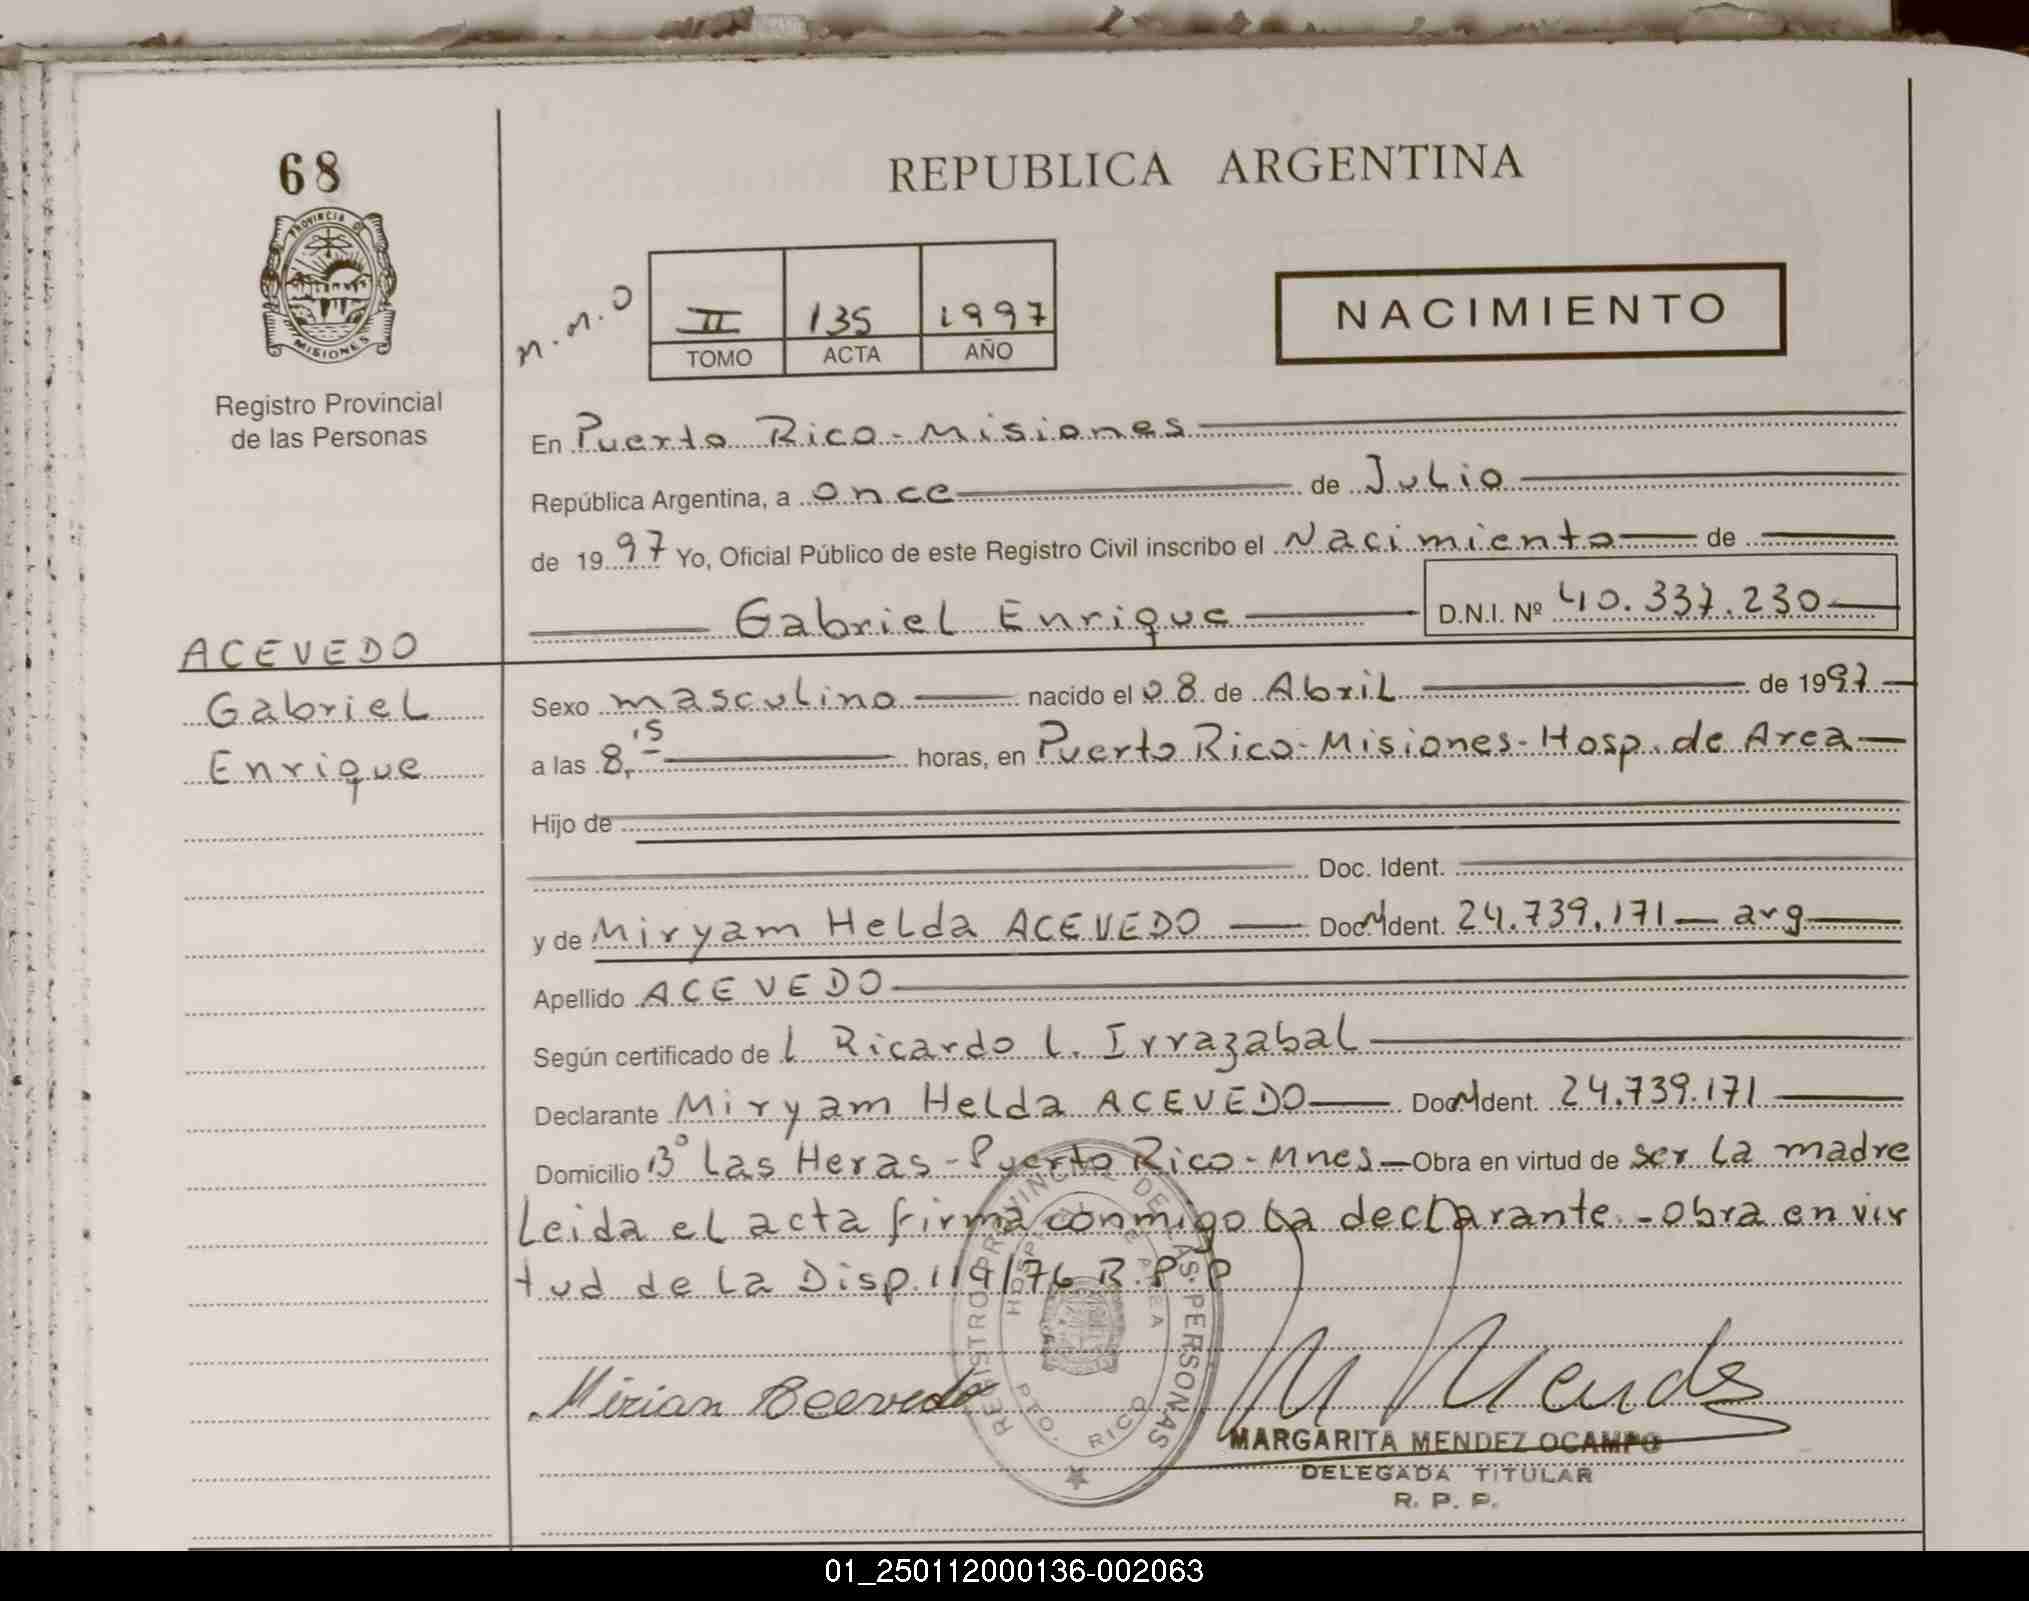 68
PROVINCIA DE
MISIONES
Registro Provincial
de las Personas
REPUBLICA ARGENTINA
n.n.o
II 135 1997
TOMO ACTA AÑO
NACIMIENTO
En Puerto Rico-Misiones
República Argentina, a once de Julio
de 1997 Yo, Oficial Público de este Registro Civil inscribo el Nacimiento de
Gabriel Enrique D.N.I. Nº 40.337.230
ACEVEDO
Gabriel
Enrique
Sexo masculino nacido el 08 de Abril de 1997
a las 8,15 horas, en Puerto Rico-Misiones-Hosp. de Area
Hijo de
Doc. Ident.
y de Miryam Helda ACEVEDO Doc. Ident. 24.739.171 - arg
Apellido ACEVEDO
Según certificado de Ricardo L. Irrazabal
Declarante Miryam Helda ACEVEDO Doc. Ident. 24.739.171
Domicilio Bº Las Heras-Puerto Rico-Mnes Obra en virtud de ser la madre
Leida el acta firma conmigo la declarante.-obra en vir
tud de la Disp. 119/76 R.P.P
REGISTRO PROVINCIAL DE LAS PERSONAS
HOSPITAL DE AREA
PTO. RICO
Mirian Acevedo
M Mendez
MARGARITA MENDEZ OCAMPO
DELEGADA TITULAR
R. P. P.
01_250112000136-002063